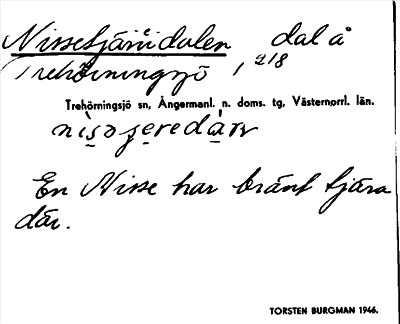 Nissetjärudalen dal å
Trehörningsjö 1, 218
Trehörningsjö sn, Ångermanl. n. doms. tg, Västernorrl. län.
En Nisse har bränt tjära
där.
TORSTEN BURGMAN 1946.